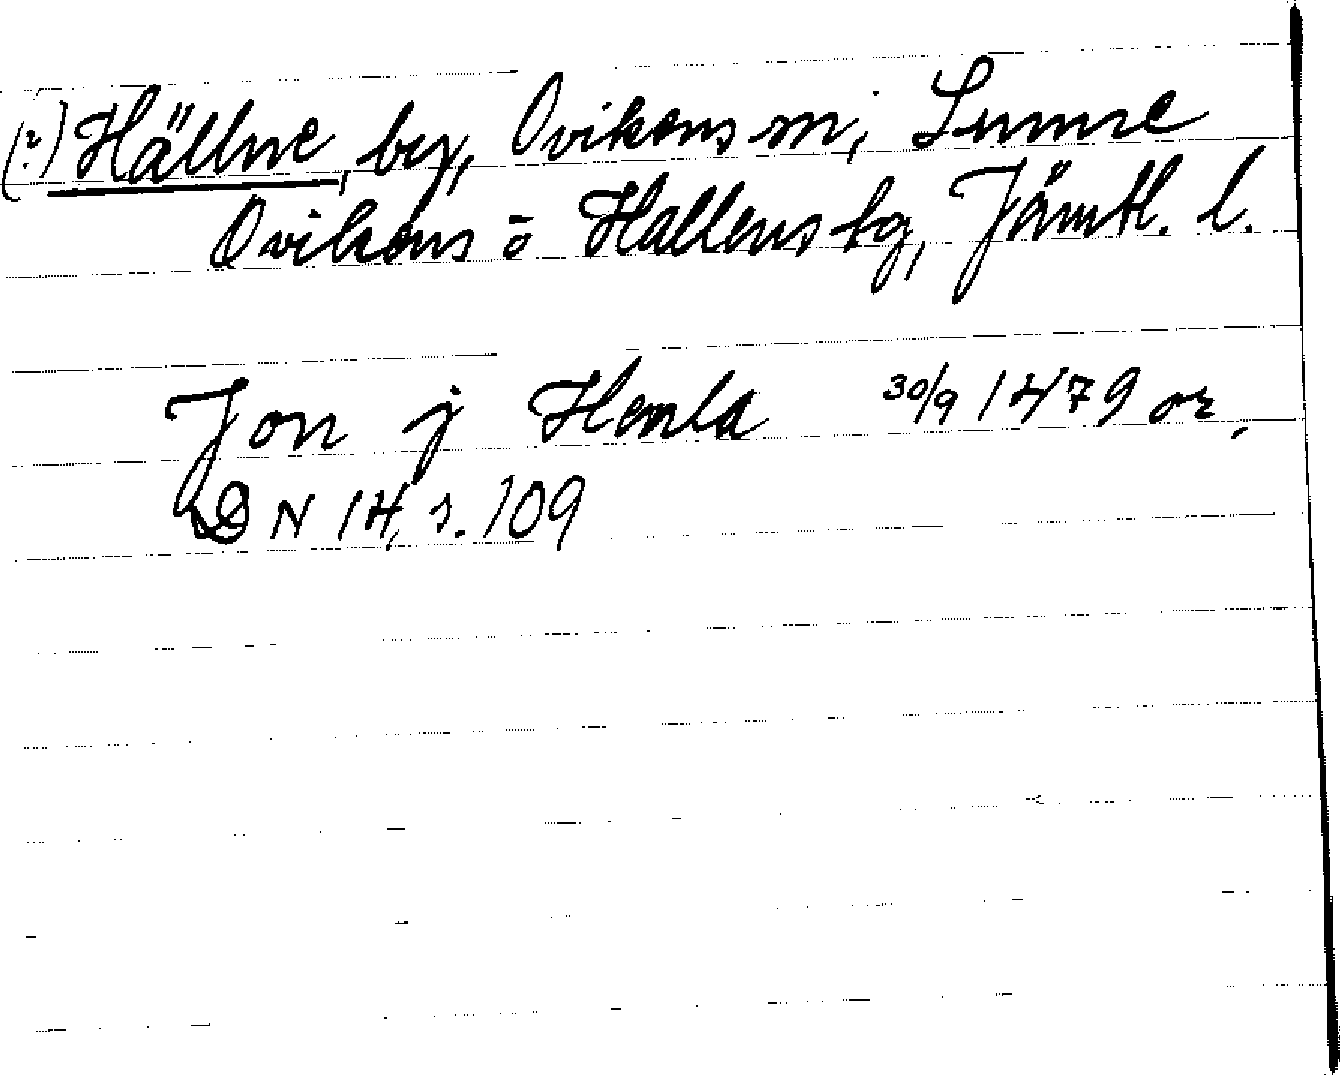 (?) Hällne, by, Ovikens sn, Sunne
Ovikens o Hallens tg, Jämtl. l.
Jon j Hemla 30/9 1479 or,
DN 14, s. 109